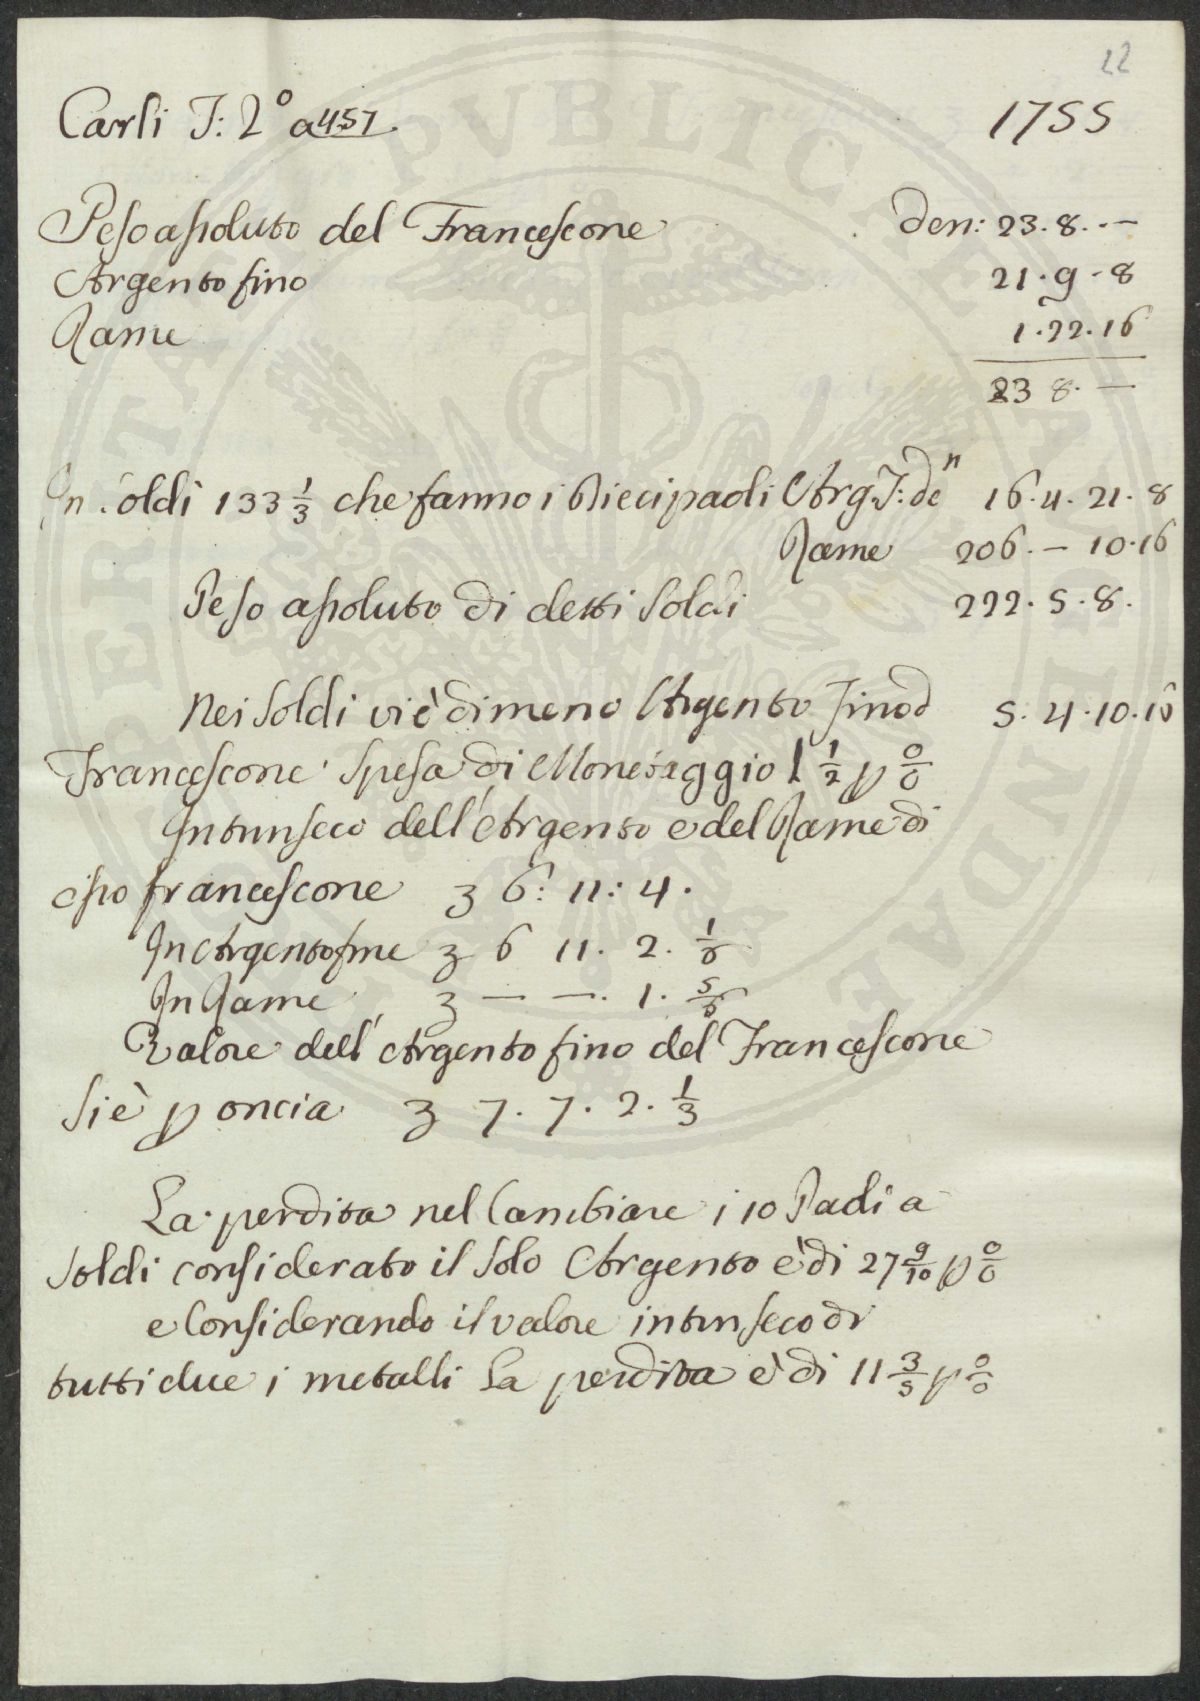 22
Carli T: 2º a 457. 1755
Peso assoluto del Francescone den: 23. 8. . —
Argento fino 21 . 9 . 8
Rame 1 . 22 . 16
23 8. —
In Soldi 133 1/3 che fanno i Dieci paoli Arg. F: deⁿ 16. 4. 21. 8
Rame 206. — 10. 16
Peso assoluto di detti Soldi 222. 5. 8.
Nei Soldi vi è di meno Argento Fino d 5. 4. 10. 16
Francescone. Spesa di Monetaggio 1 1/2 p 0/0
Intrinseco dell'Argento e del Rame di
esso francescone ʒ 6: 11: 4.
In Argento fine ʒ 6 11. 2. 1/6
In Rame ʒ — —. 1. 5/6
Valore dell'Argento fino del Francescone
Si è p oncia ʒ 7. 7. 2. 1/3
La perdita nel Cambiare i 10 Paoli a
Soldi considerato il Solo Argento è di 27 9/10 p 0/0
e Considerando il valore intrinseco di
tutti due i metalli La perdita è di 11 3/5 p 0/0
PERTATI PVBLICAE AVGENDAE